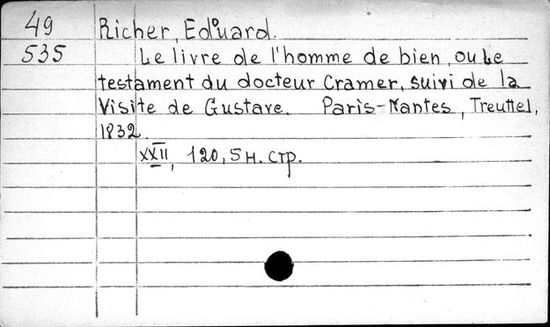 49 Richer, Edouard.
535 Le livre de l'homme de bien, ou Le
testament du docteur Cramer, suivi de la
Visite de Gustave. Paris-Nantes, Treuttel,
1832.
XXII, 120, 5 н. стр.